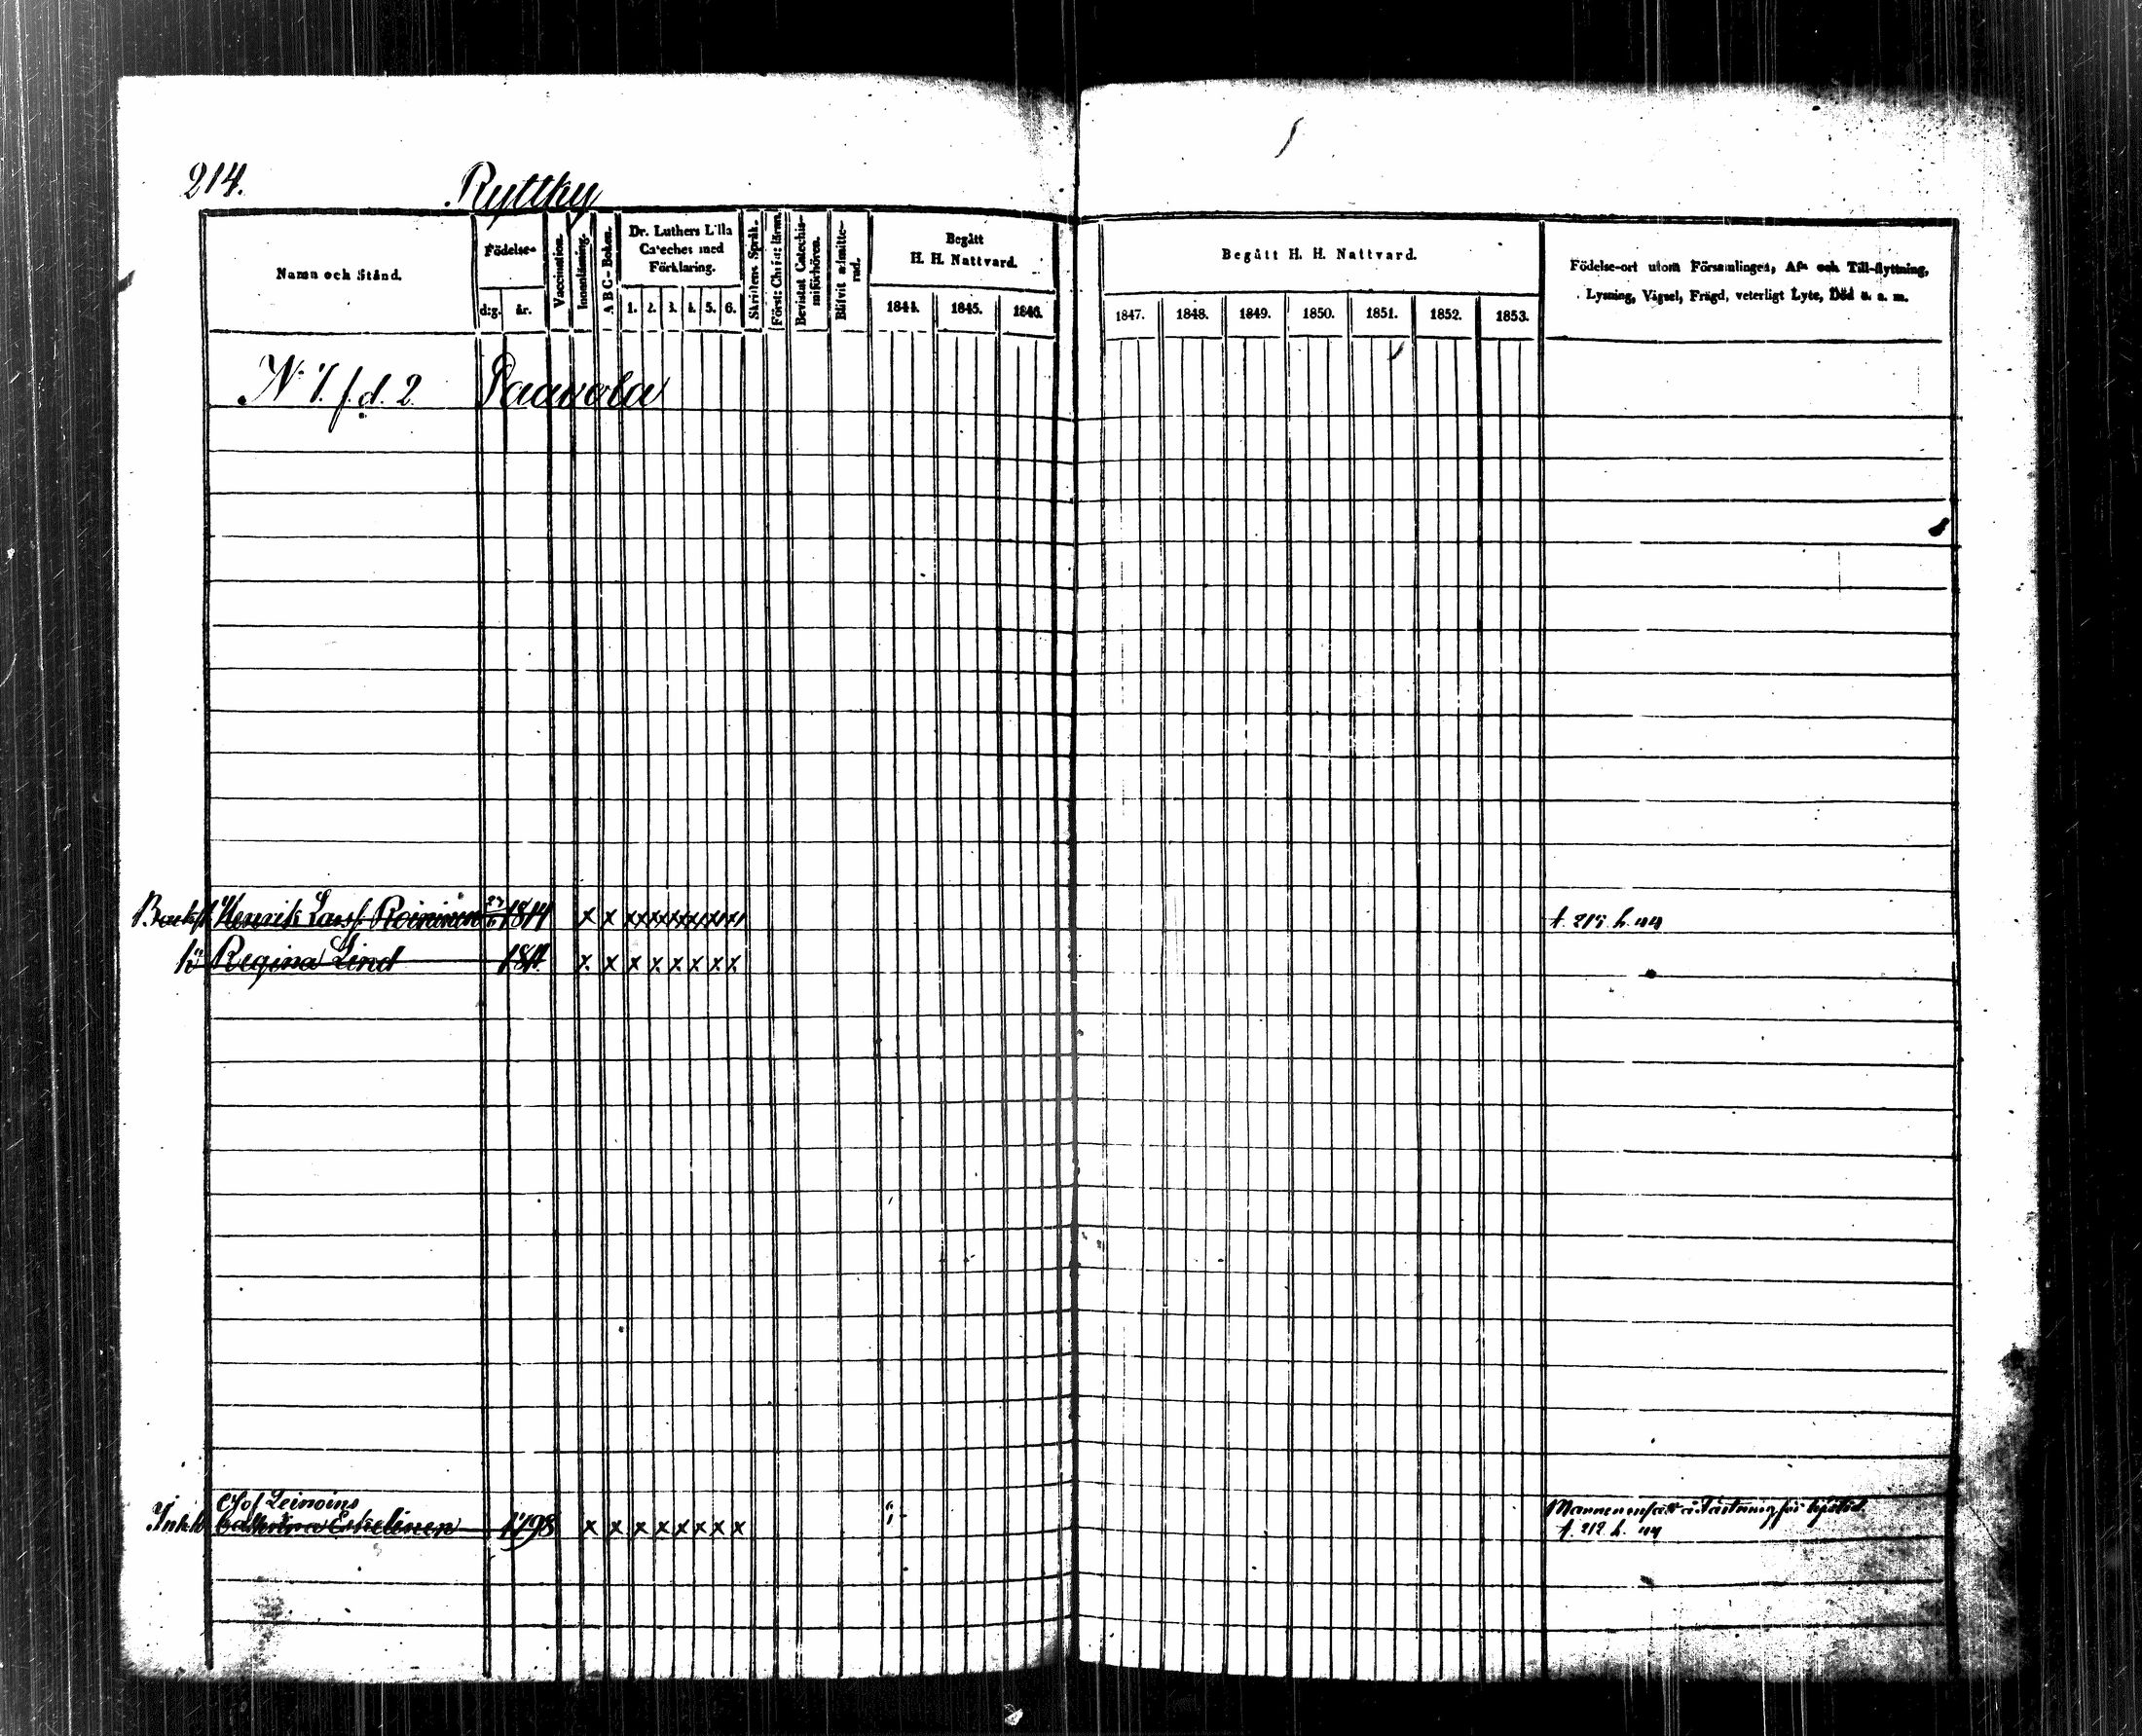 214.
Ryttky
Namn och Stånd.
Födelse-
d:g.
år.
Vaccination.
Innanläsning.
ABC-Boken.
Dr. Luthers Lilla
Cateches med
Förklaring.
1. 2. 3. 4. 5. 6.
Skriftens Språk.
Bevistat Catechis-
miförhören.
Blifvit admitte-
rad.
Begått
H. H. Nattvard.
1844. 1845. 1846.
Begått H. H. Nattvard.
1847. 1848. 1849. 1850. 1851. 1852. 1853.
Födelse-ort utom Församlingen, Af- och Till-flyttning,
Lysning, Vigsel, Frägd, veterligt Lyte, Död o. s. m.
N 1. f.d. 2 Paavola
Henrik Larsf. Roininen 1814 x x x x x x x x x x x x t. 215 h. 44
Regina Lind x x x x x x x x
Olof Leinoins
Inh. Cathrina Eskelinen 1798 x x x x x x x x
t. 212 h. 44